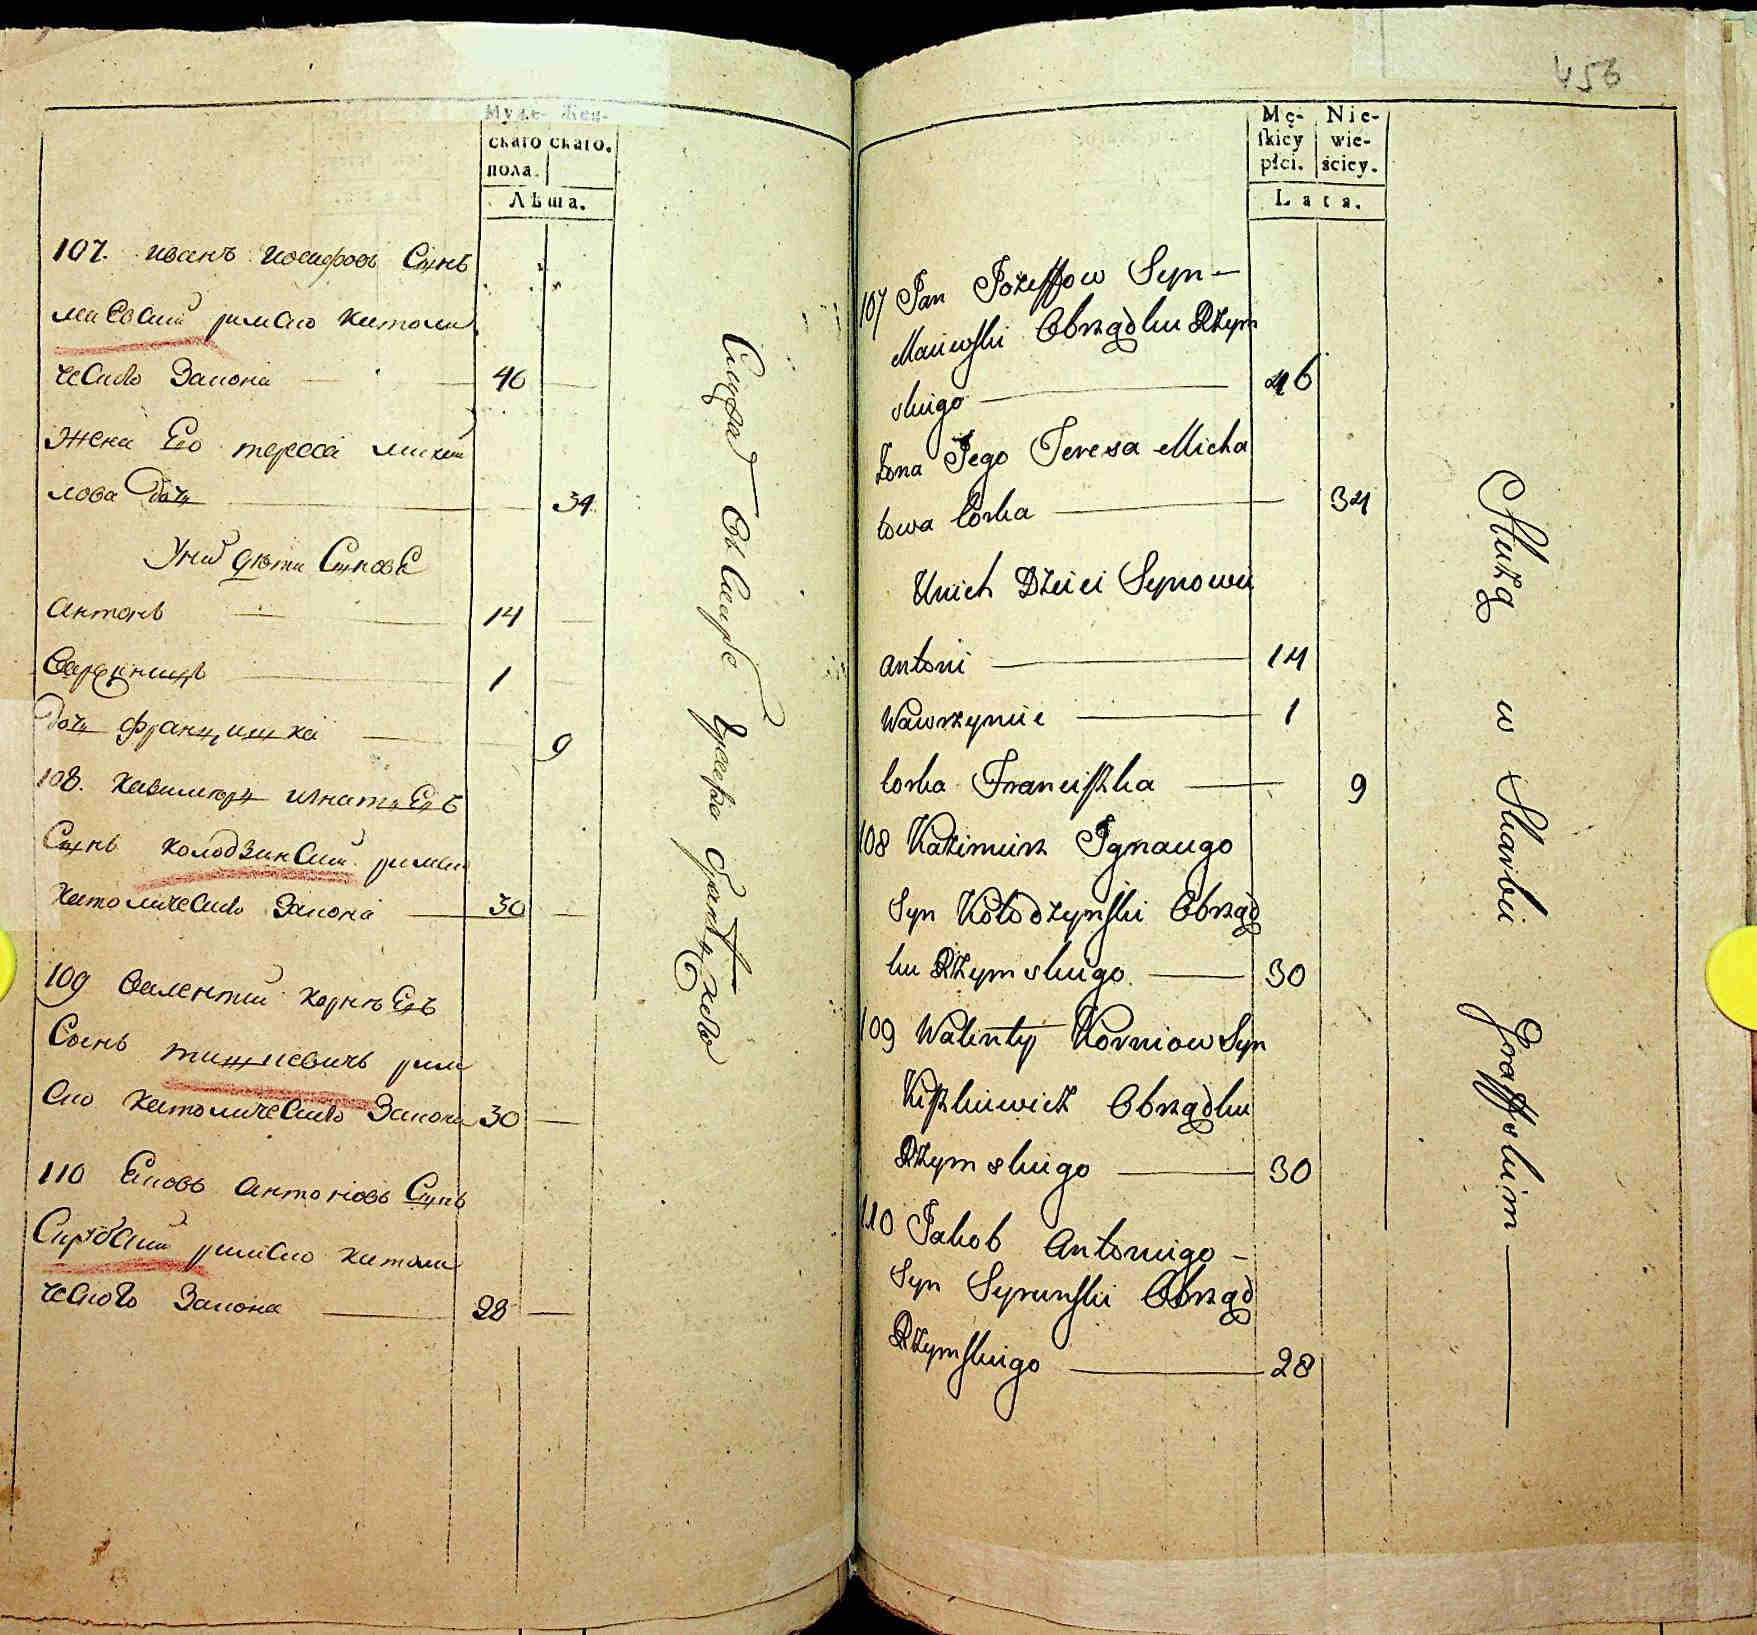 Муже- Жен-
скаго скаго.
пола.
Лѣта.
107. иванъ иосифовъ Сынъ
маевский римско католи
ческаго Закона 46
Жена Его тереса михай
лова дочь 34
Уних дѣти Сыновѣ
антонъ 14
вавринецъ 1
дочь францишка 9
108. казимиръ игнатьевъ
Сынъ колодзинский римско
католическаго Закона 30
109 валентий корнѣевъ
Сынъ римс
ско католическаго Закона 30
110 антоновъ Сынъ
римско католи
ческого Закона 28
Служатъ въ скарбе
453
Mę- Nie-
ſkiey wie-
płci. ściey.
Lata.
107 Jan Jozeffow Syn
Maiewſki Obrządku Rzym
skiego 46
Zona Jego Teresa Micha
łowa Corka 34
Unich Dzieci Synowie
Antoni 14
Wawrzyniec 1
Corka Franciſzka 9
108 Kazimierz Ignacego
Syn Kołodzynſki Obrząd
ku Rzymskiego 30
109 Walenty Korniow Syn
Kiſzkiewicz Obrządku
Rzymskiego 30
110 Jakob Antoniego
Syn Obrząd
Rzymſkiego 28
Służą w Skarbie Graffskim